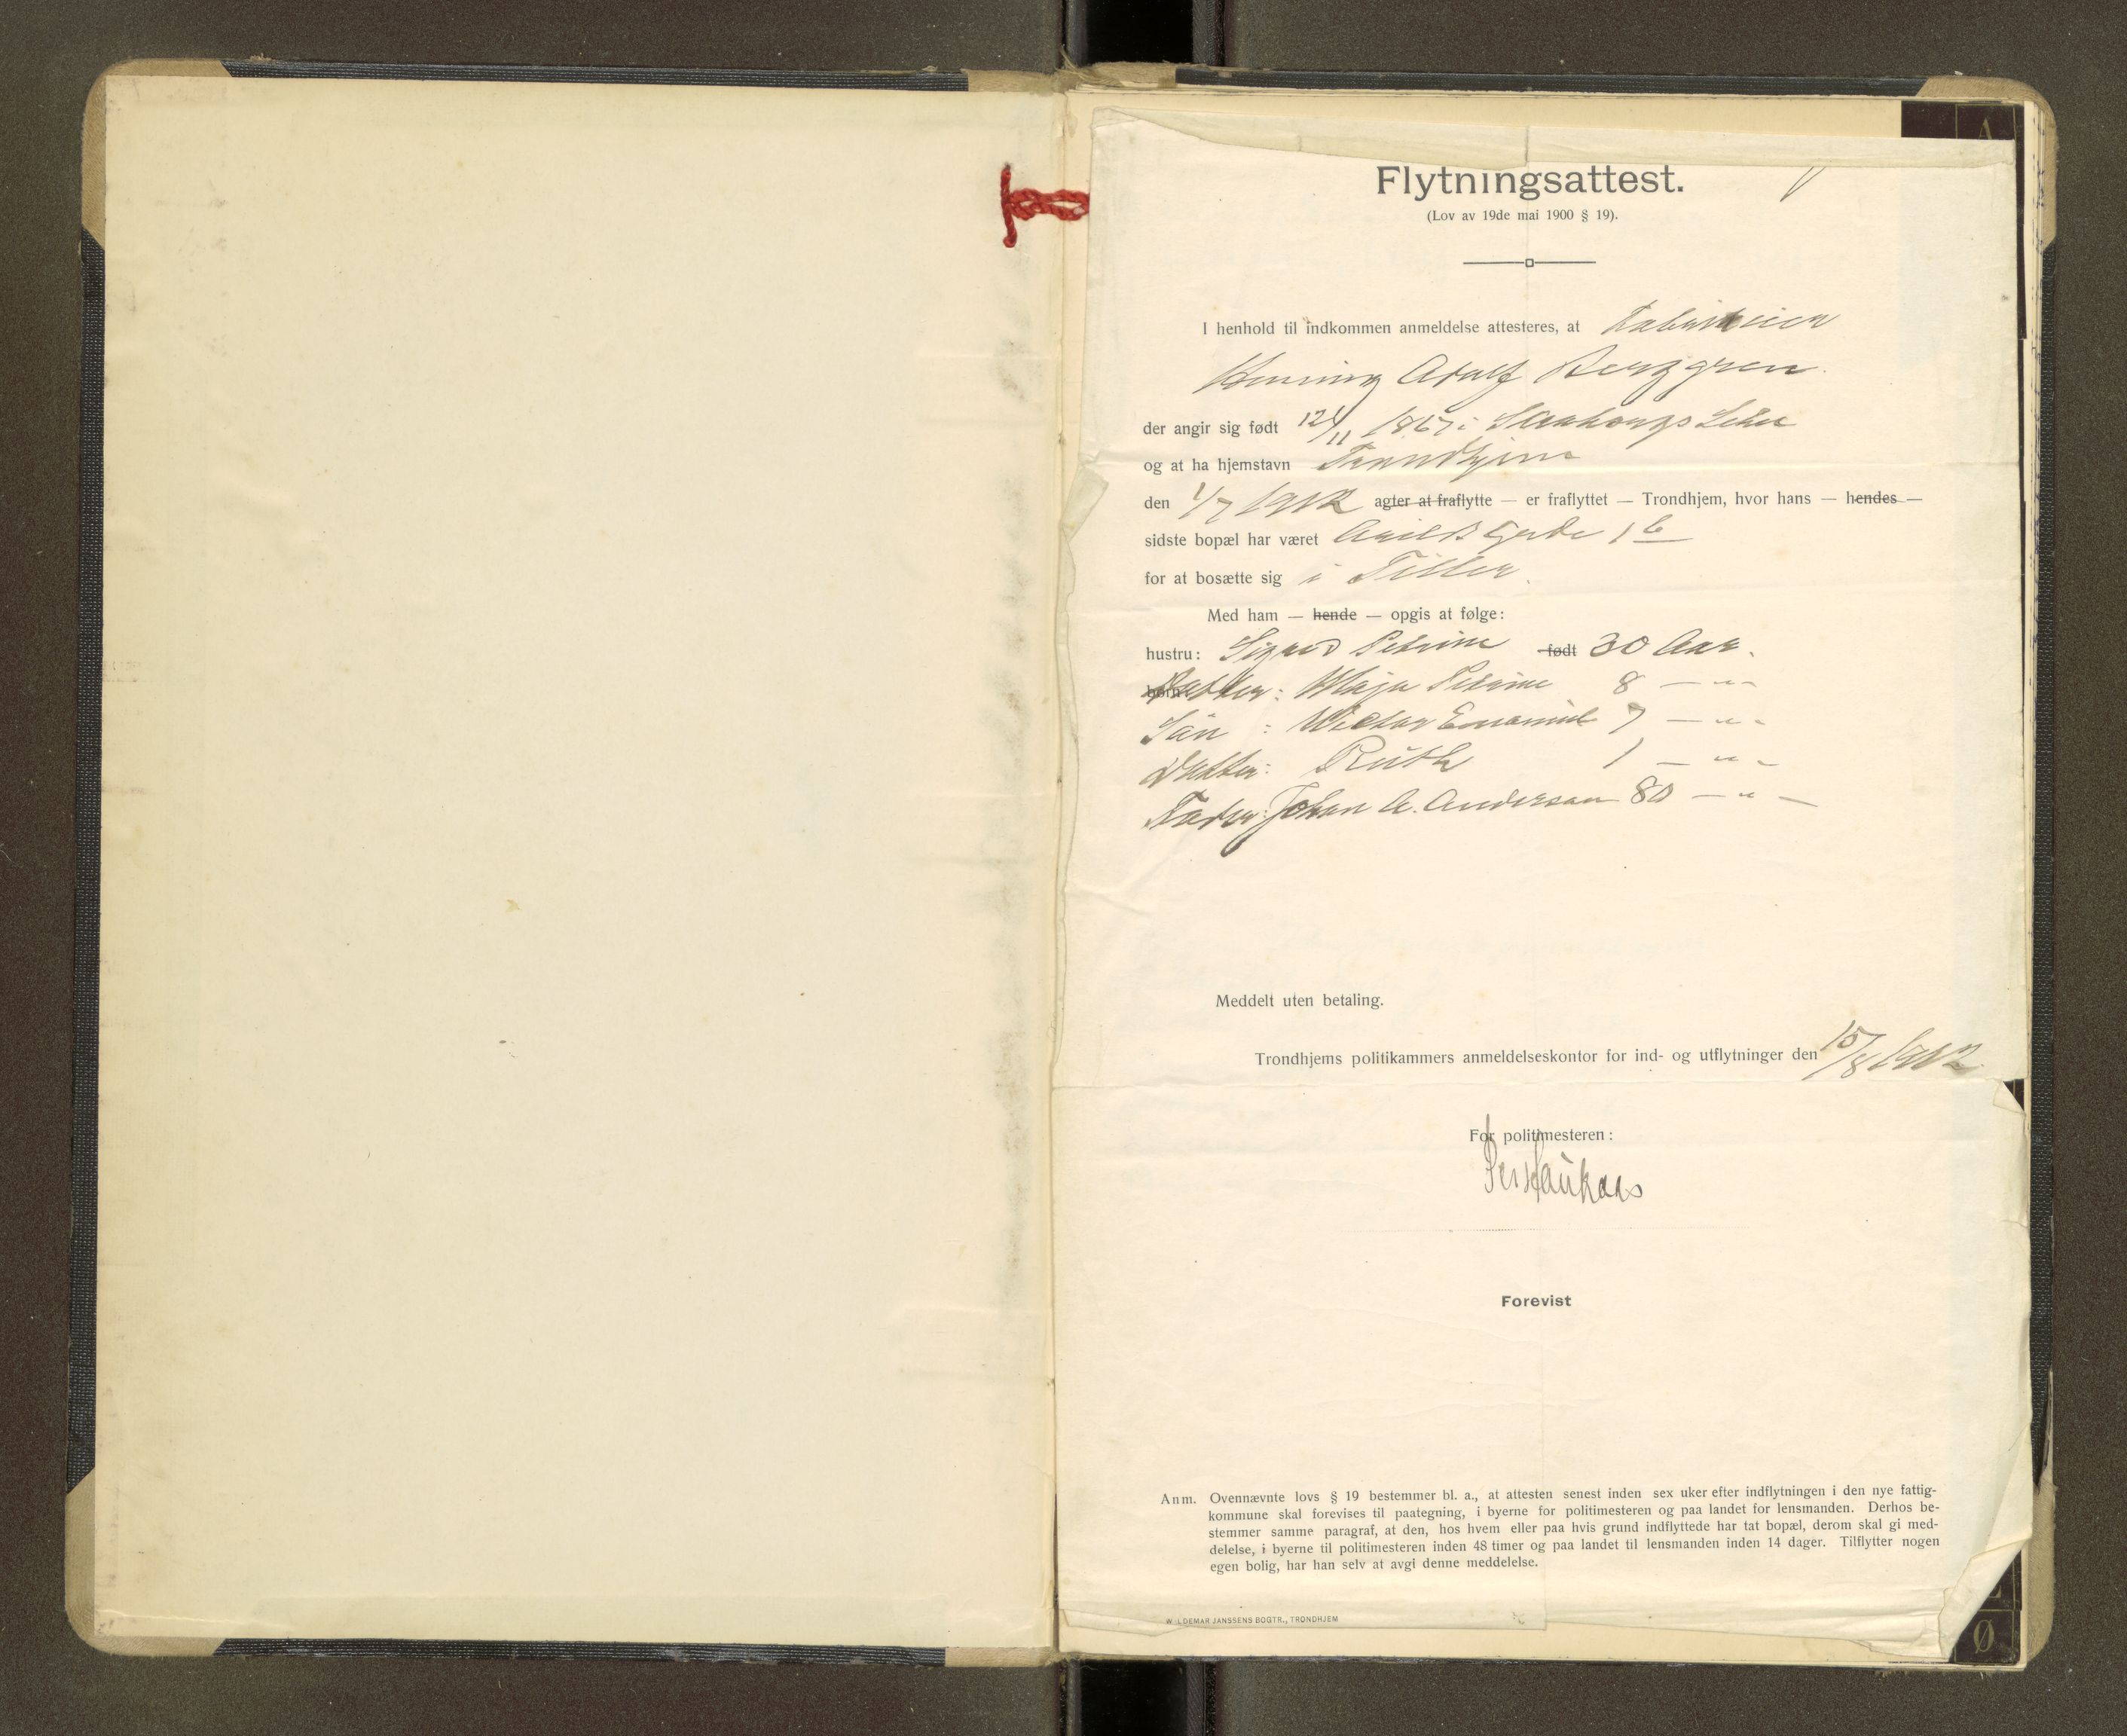 A
Flytningsattest.
(Lov av 19de mai 1900 § 19).
I henhold til indkommen anmeldelse attesteres, at
Henning Adolf Berggren.
der angir sig født 12/11 1867 i Skaraborgs Lehn
og at ha hjemstavn Trondhjem
den 1/7 1912 agter at fraflytte — er fraflyttet — Trondhjem, hvor hans — hendes —
sidste bopæl har været Arilds Gade 1 b
for at bosætte sig i Tiller.
Med ham — hende — opgis at følge:
hustru: Signe Petrine født 30 Aar.
børn: Datter: Maja Petrine 8 — " —
Sön : Victor Emanuel 7 — " —
Datter: Ruth 1 — " —
Fader: Johan A. Anderson 80 — " —
Meddelt uten betaling.
Trondhjems politikammers anmeldelseskontor for ind- og utflytninger den 15/8 1912.
For politimesteren:
Forevist
Anm. Ovennævnte lovs § 19 bestemmer bl. a., at attesten senest inden sex uker efter indflytningen i den nye fattig-
kommune skal forevises til paategning, i byerne for politimesteren og paa landet for lensmanden. Derhos be-
stemmer samme paragraf, at den, hos hvem eller paa hvis grund indflyttede har tat bopæl, derom skal gi med-
delelse, i byerne til politimesteren inden 48 timer og paa landet til lensmanden inden 14 dager. Tilflytter nogen
egen bolig, har han selv at avgi denne meddelelse.
WALDEMAR JANSSENS BOGTR., TRONDHJEM
Ø